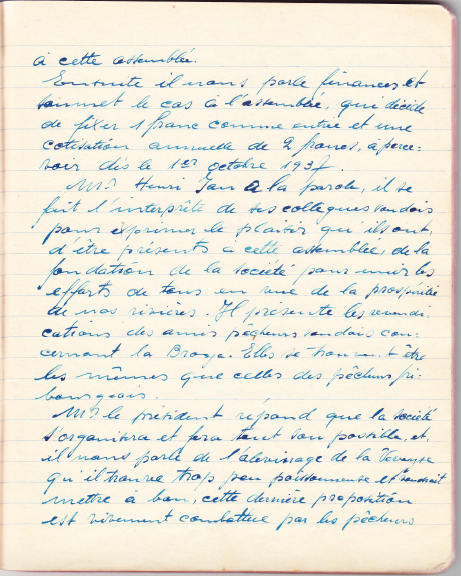 à cette assemblée.
Ensuite il nous parle finances, et
soumet le cas à l'assemblée, qui décide
de fixer 1 franc comme entrée et une
cotisation annuelle de 2 francs, à perce-
voir dès le 1er octobre 1937.
Mr. Henri Jan a la parole, il se
fait l'interprète de ses collègues vaudois
pour exprimer le plaisir qu'ils ont,
d'être présents à cette assemblée, de la
fondation de la société pour unir les
efforts de tous en vue de la prospérité
de nos rivières. Il présente les revendi-
cations des amis pêcheurs vaudois con-
cernant la Broye. Elles se trouvent être
les mêmes que celles des pêcheurs fri-
bourgeois.
Mr. le président répond que la société
s'organisera et fera tout son possible, et,
il nous parle de l'alevinage de la Veveyse
qu'il trouve trop peu poissonneuse et voudrait
mettre à ban, cette dernière proposition
est vivement combattue par les pêcheurs